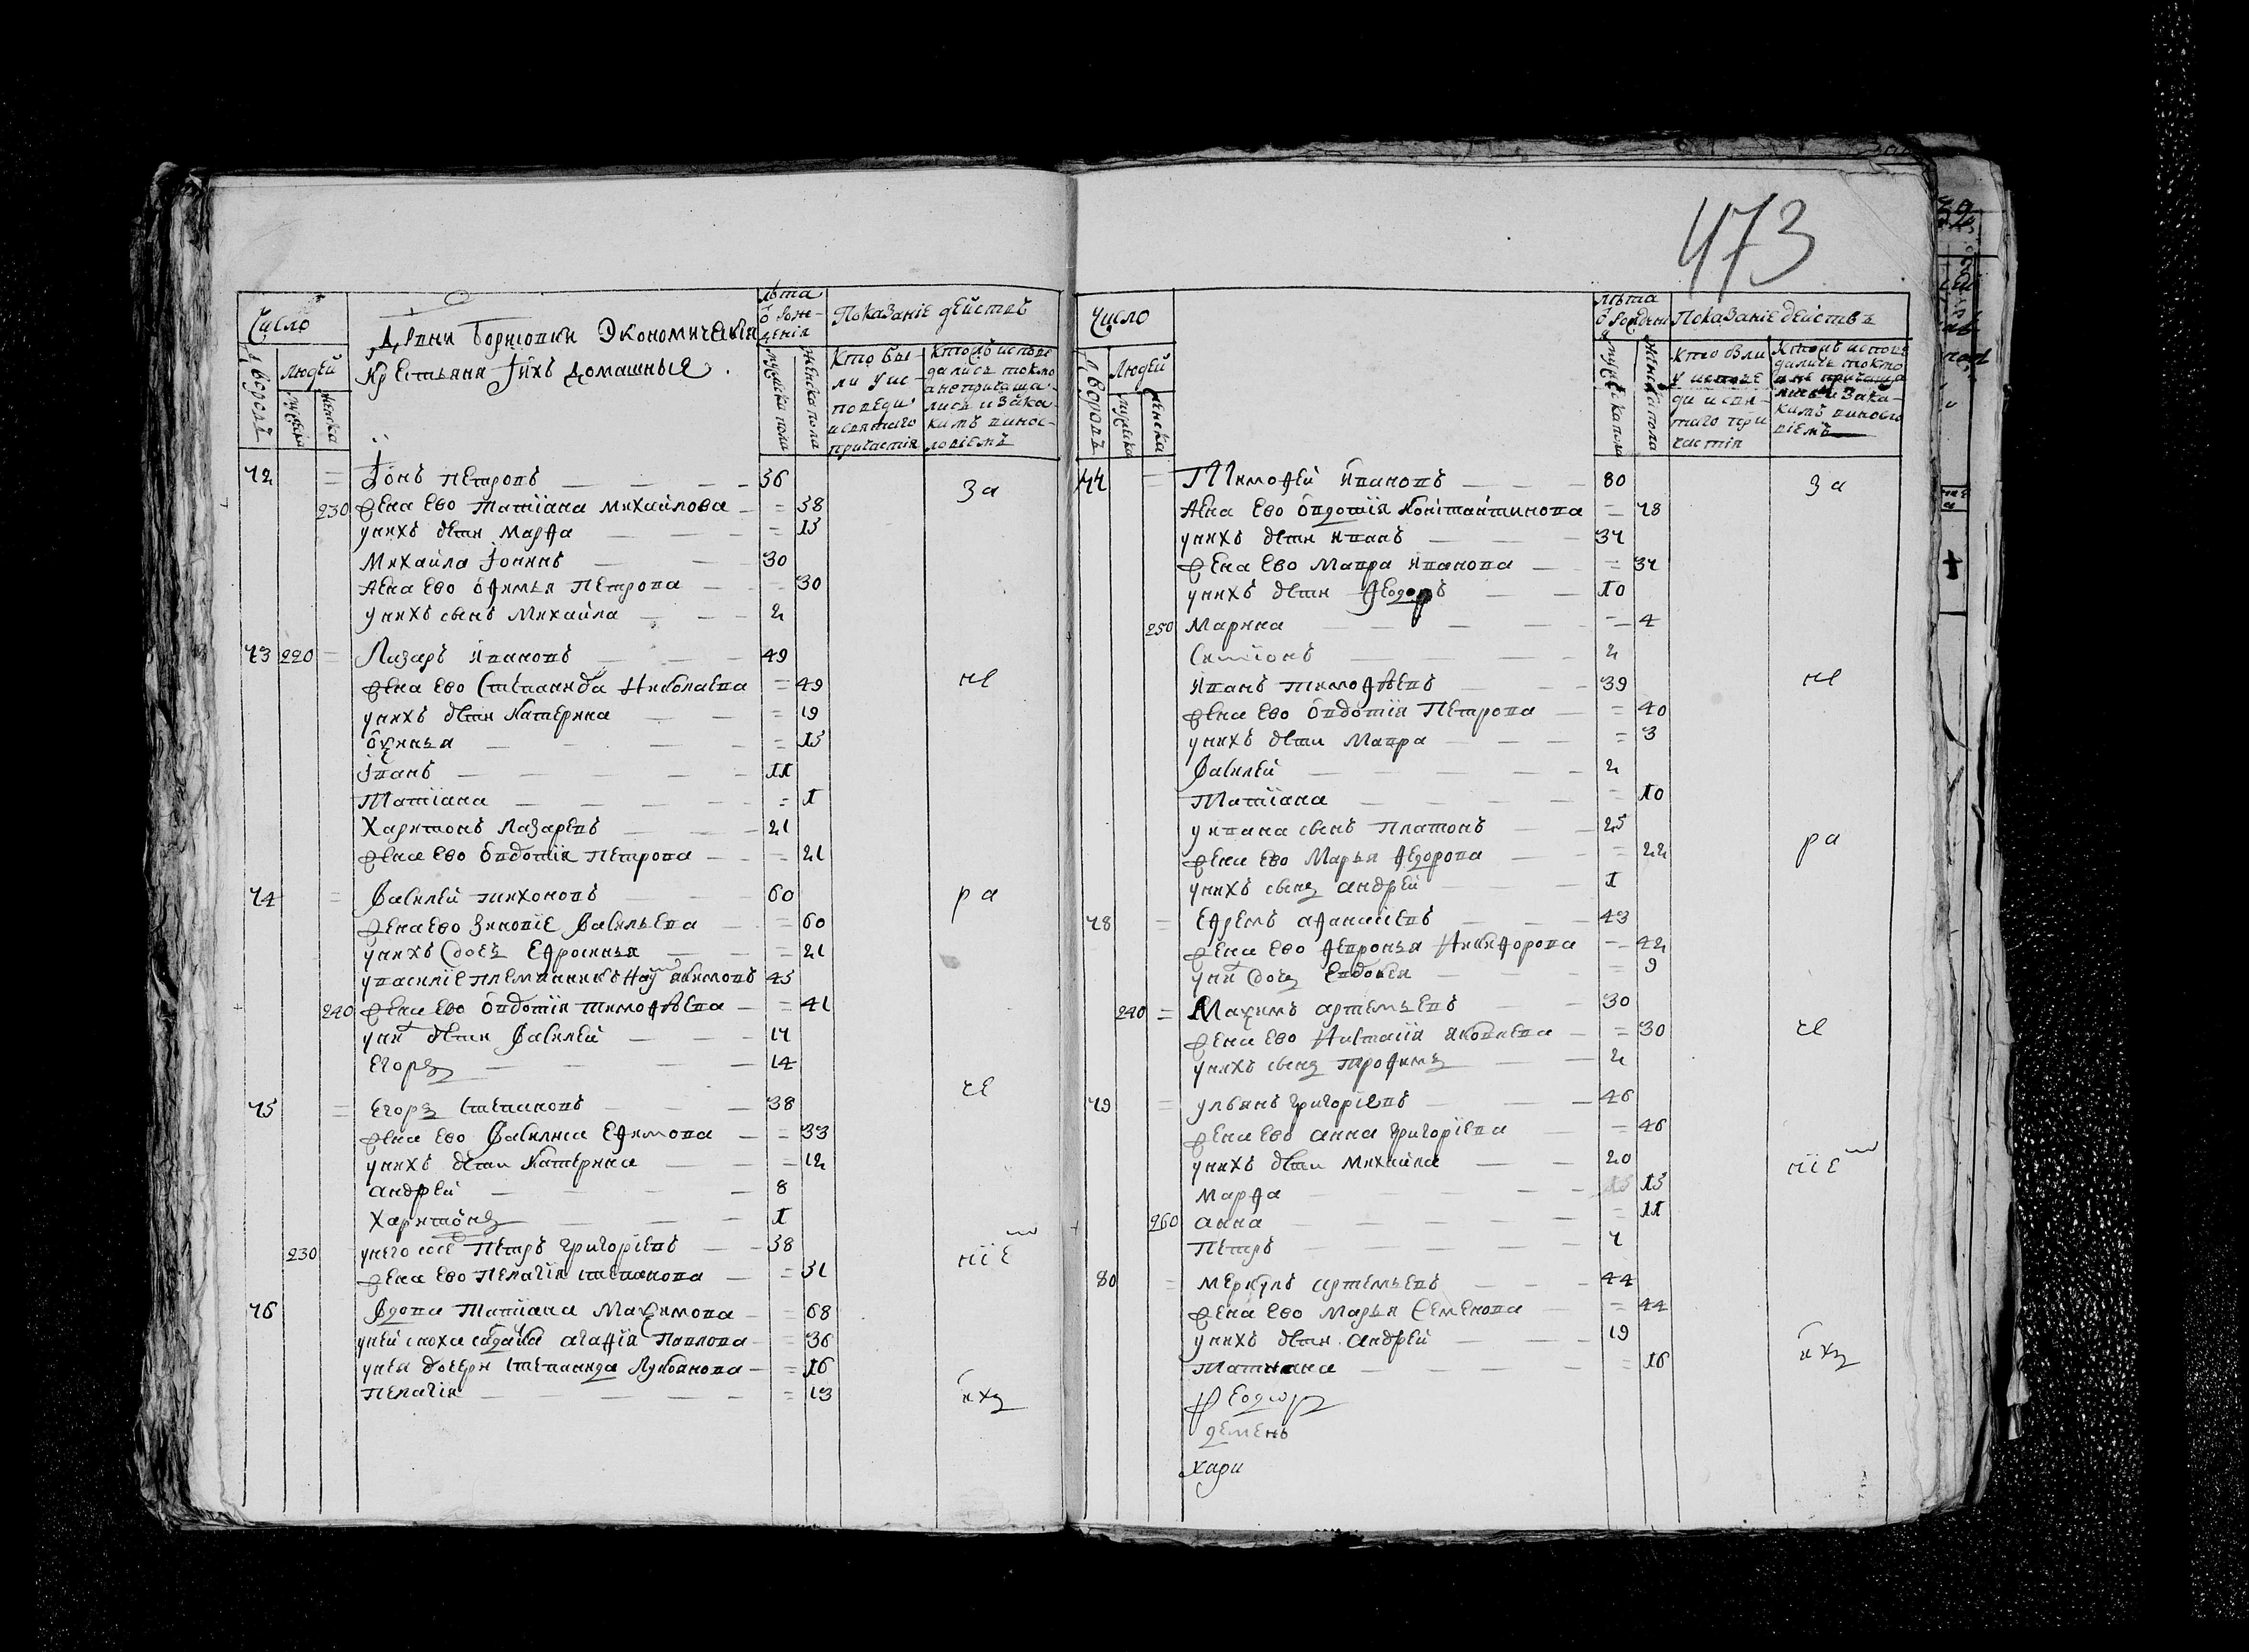 473
Число
Дворовъ
Людей
мужеска
женска
Дрвни Борщовки Экономическия
Крестьяня іихъ домашныя
лѣта
ѿ рож-
денія
мужеска пола
женска пола
Показаніе действъ
Кто бы
ли у ис-
поведи
исвятаго
причастія
Ктоже испове
дались токмо
анепричаща-
лись иЗака-
кимъ винос-
ловіемъ
72 = Іонъ Петровъ 56
230 жена Ево Татіана михайлова = 58
унихъ дети Марѳа = 15
Михаила Іонинъ 30
жена Ево Ѳимья Петрова 30
унихъ сынъ Михайла 2
73 220 = Лазарь Ивановъ 49
жена Ево Степанида Николаева = 49
унихъ дети Катерина = 19
= 15
Іванъ 11
Татіана = 1
Харитонъ Лазаревъ 21
жена Ево Овдотія Петрова = 21
74 = Василей тихоновъ 60
женаЕво Зиновіе Васильева = 60
унихъ дочь Ефросинья = 21
45
240 жена Ево Овдотія тимоѳѣева = 41
уни дети Василей 17
Егоръ 14
75 = Егоръ степановъ 38
жена Ево Василиса Ефимова = 33
унихъ дети Катерина = 12
андрей 8
Харитонъ 1
230 унего Петръ григоріевъ 38
жена Ево Пелагія степанова = 31
76 Вдова Татіана Маѯимова = 68
уней сноха агаѳія Павлова = 36
унея дочери степанида Лукоянова = 16
Пелагія = 13
За
не
ра
че
ніе
ихъ
Число
Дворовъ
Людей
мужеска
женска
лѣта
ѿ рождені
мужеска пола
женска пола
Показаніе действъ
Кто были
у испове
ди исвя-
таго при
частія
Ктоже испове
дались токмо
ане прича­ща
лись и Зака-
кимъ виносло
віемъ
77 = Тимоѳей Ивановъ 80
жена Ево Овдотія Константинова = 78
унихъ дети Иванъ 37
жена Ево Мавра Иванова = 37
унихъ дети Ѳеодоръ 10
250 Марина = 4
Симіонъ 2
Иванъ тимоѳѣевъ 39
жена Ево Овдотія Петрова = 40
унихъ дети Мавра = 3
Василей 2
Татіана = 10
уивана сынъ Платонъ 25
жена Ево Марья Ѳедорова = 22
унихъ сынъ андрей 1
78 = Ефремъ аѳанасіевъ 43
жена Ево Ѳевронья Никифорова = 42
уни дочь Евдокея = 9
240 = Маѯимъ артемьевъ 30
жена Ево Настасія Яковлева = 30
унихъ сынъ трофимъ 2
79 = ульянъ григоріевъ 46
жена Ево анна григоріева = 46
унихъ дети михайла 20
марѳа 15
260 анна = 11
Петръ 7
80 = меркулъ артемьевъ 44
жена Ево марья Семенова = 44
унихъ дети андрей 19
Татиана = 16
Ѳеодор
демень
хари
За
не
ра
че
ніе
ихъ